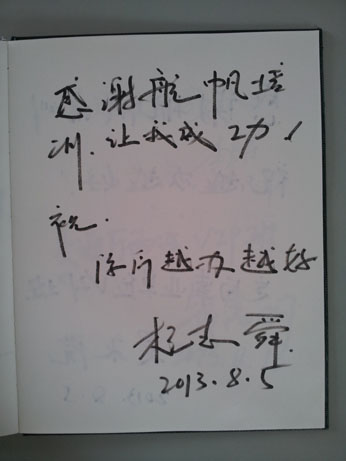 感谢航帆培
训.让我成功！
祝.
济南越办越好
杨志舜.
2013.8.5